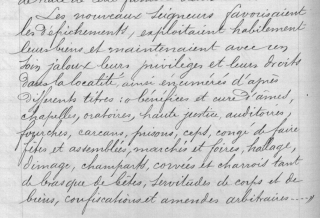 Les nouveaux Seigneurs favorisaient
les défrichements, exploitaient habilement
leurs biens et maintenaient avec un
soin jaloux leurs privilèges et leurs droits
dans la localité ainsi énumérés d'après
différents titres : bénéfices et cure d'âmes,
chapelles, oratoires, haute justice, auditoires,
fourches, carcans, prisons, ceps, congé de faire
fêtes et assemblées, marchés et foires, hallage,
dimage, champarts, corvées et charrois tant
de bras que de bêtes, servitudes de corps et de
biens, confiscations et amendes arbitraires